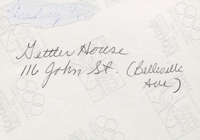 Gettler House
116 John St. (Belleville
Ave)